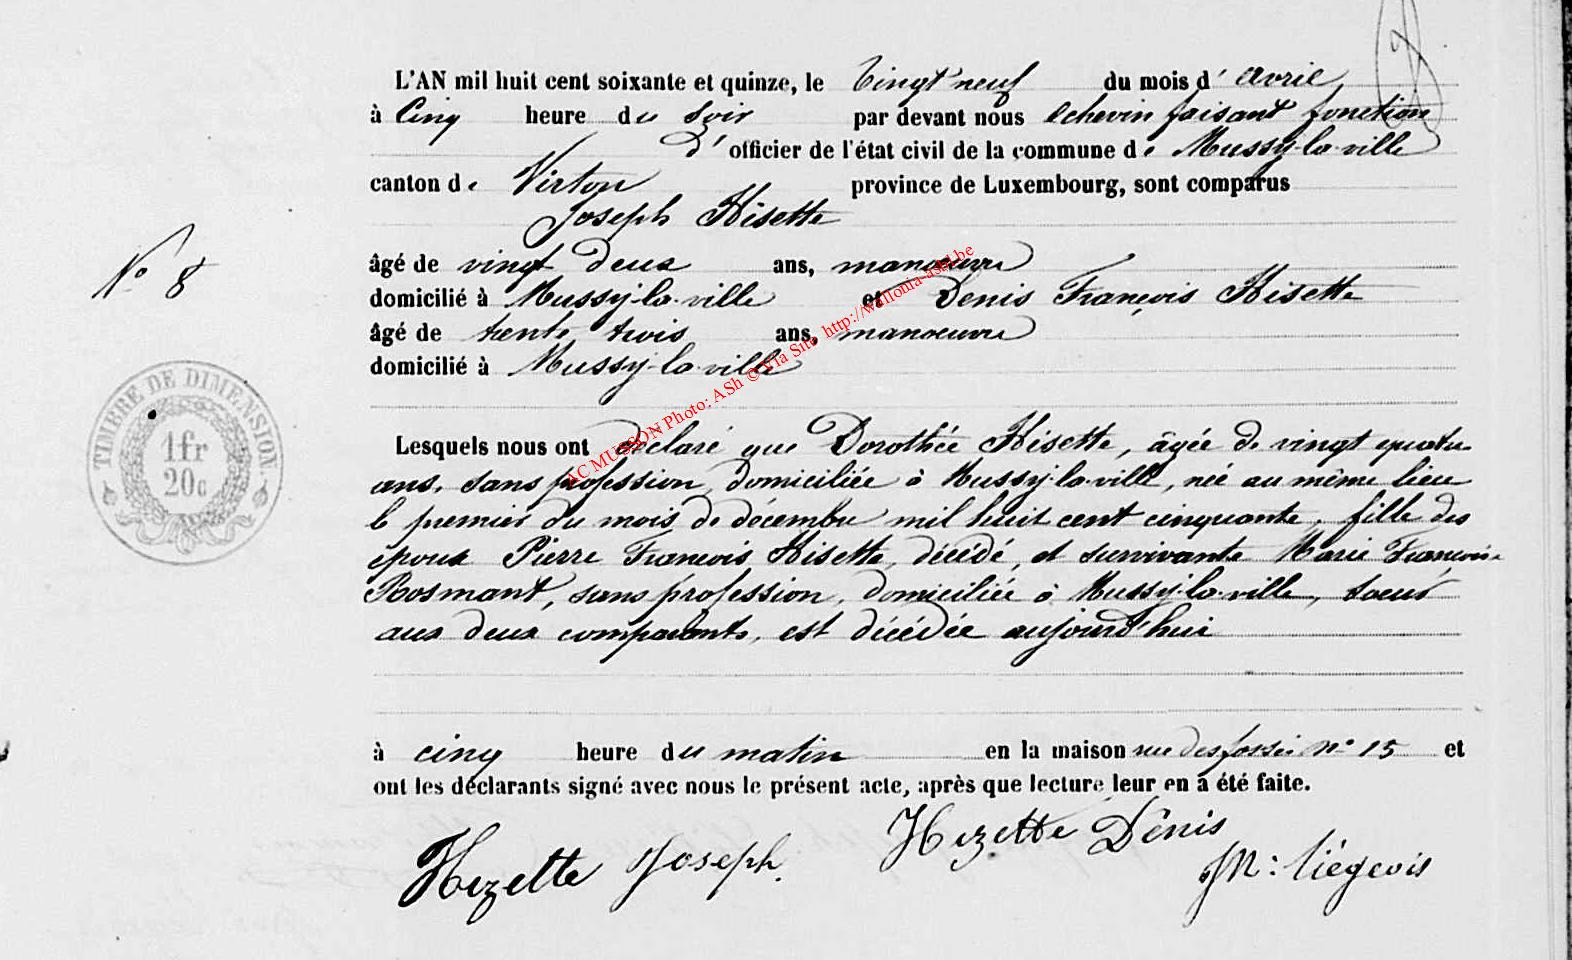 L'AN mil huit cent soixante et quinze, le Vingt neuf du mois d' avril
à Cinq heure du soir par devant nous echevin faisant fonction
d' officier de l'état civil de la commune de Mussy-la-ville
canton de Virton province de Luxembourg, sont comparus
Joseph Hisette
N° 8
âgé de vingt deux ans, manœuvre
domicilié à Mussy-la-ville et Denis François Hisette
âgé de trente trois ans, manœuvre
domicilié à Mussy-la-ville
AC MUSSON Photo: ASh © Via Site http://wallonia-asbl.be
TIMBRE DE DIMENSION
1fr
20c
Lesquels nous ont déclaré que Dorothée Hisette, âgée de vingt quatre
ans, sans profession, domiciliée à Mussy-la-ville, née au même lieu
le premier du mois de décembre mil huit cent cinquante, fille des
époux Pierre François Hisette, décédé, et survivante Marie Françoise
Rosmant, sans profession, domiciliée à Mussy-la-ville, soeur
aux deux comparants, est décédée aujourd'hui
à cinq heure du matin en la maison rue des fossés n° 15 et
ont les déclarants signé avec nous le présent acte, après que lecture leur en a été faite.
Hezette Joseph. Hezette Dênis
JN: Liégeois